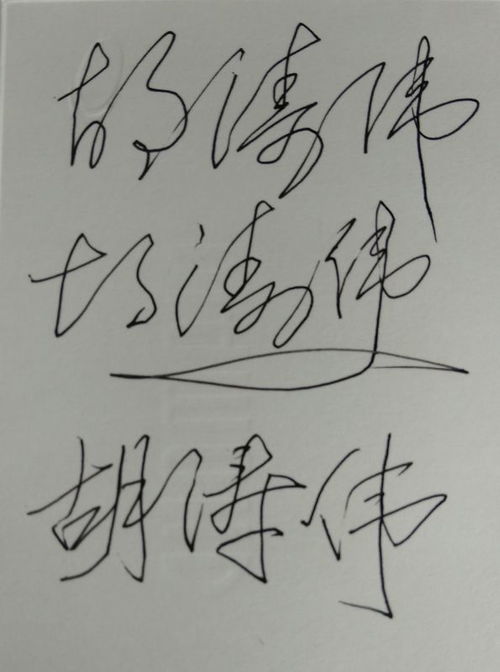 胡涛伟
胡涛伟
胡涛伟